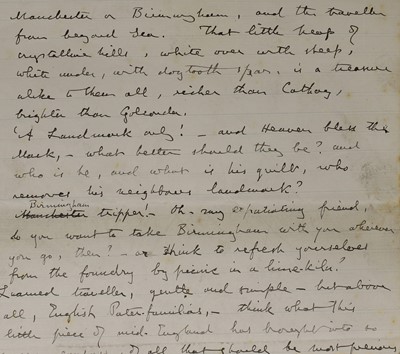 Manchester or Birmingham, and the traveller
from beyond Sea. That little heap of
crystalline hills, white over with sheep,
white under, with dogtooth spar, is a treasure
alike to them all, richer than Cathay,
brighter than Golconda.
'A Landmark only!' – and Heaven bless the
Mark, – what better should they be? and
who is he, and what is his guilt, who
removes his neighbours landmark?
Birmingham
Manchester tripper! – Oh – my expatiating friend,
do you want to take Birmingham with you wherever
you go, then? – or think to refresh yourselves
from the foundry by picnic in a lime-kiln?
Learned traveller, gentle and simple – but above
all, English Pater-familias, – think what this
little piece of mid-England has brought into so
of all that should be most precious